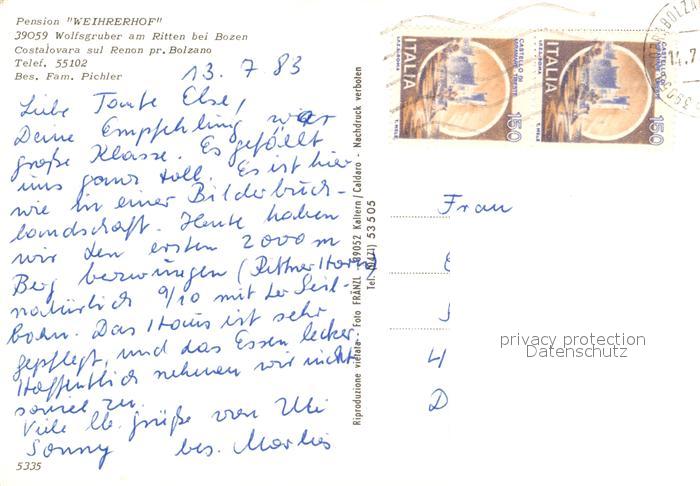 Pension "WEIHRERHOF"
39059 Wolfsgruber am Ritten bei Bozen
Costalovara sul Renon pr. Bolzano
Telef. 55102
Bes. Fam. Pichler
13. 7 83
Liebe Tante Else,
Deine Empfehlung war
große Klasse. Es gefällt
uns ganz toll. Es ist hier
wie in einer Bilderbuch-
landschaft. Heute haben
wir den ersten 2000 m
Berg bezwungen (Rittner Horn)
natürlich 9/10 mit der Seil-
bahn. Das Haus ist sehr
gepflegt, und das Essen lecker.
Hoffentlich nehmen wir nicht
soviel zu.
Viele lb. Grüße von Uli
Sonny bes. Marlies
5335
Riproduzione vietata - Foto FRANZL 39052 Kaltern/Caldaro - Nachdruck verboten
Tel. (0471) 53505
ITALIA
CASTELLO DI
MIRAMARE TRIESTE
150
I.P.Z.S. ROMA
T. MELE
ITALIA
CASTELLO DI
MIRAMARE TRIESTE
150
I.P.Z.S. ROMA
T. MELE
14.7
Frau
4
D
privacy protection
Datenschutz